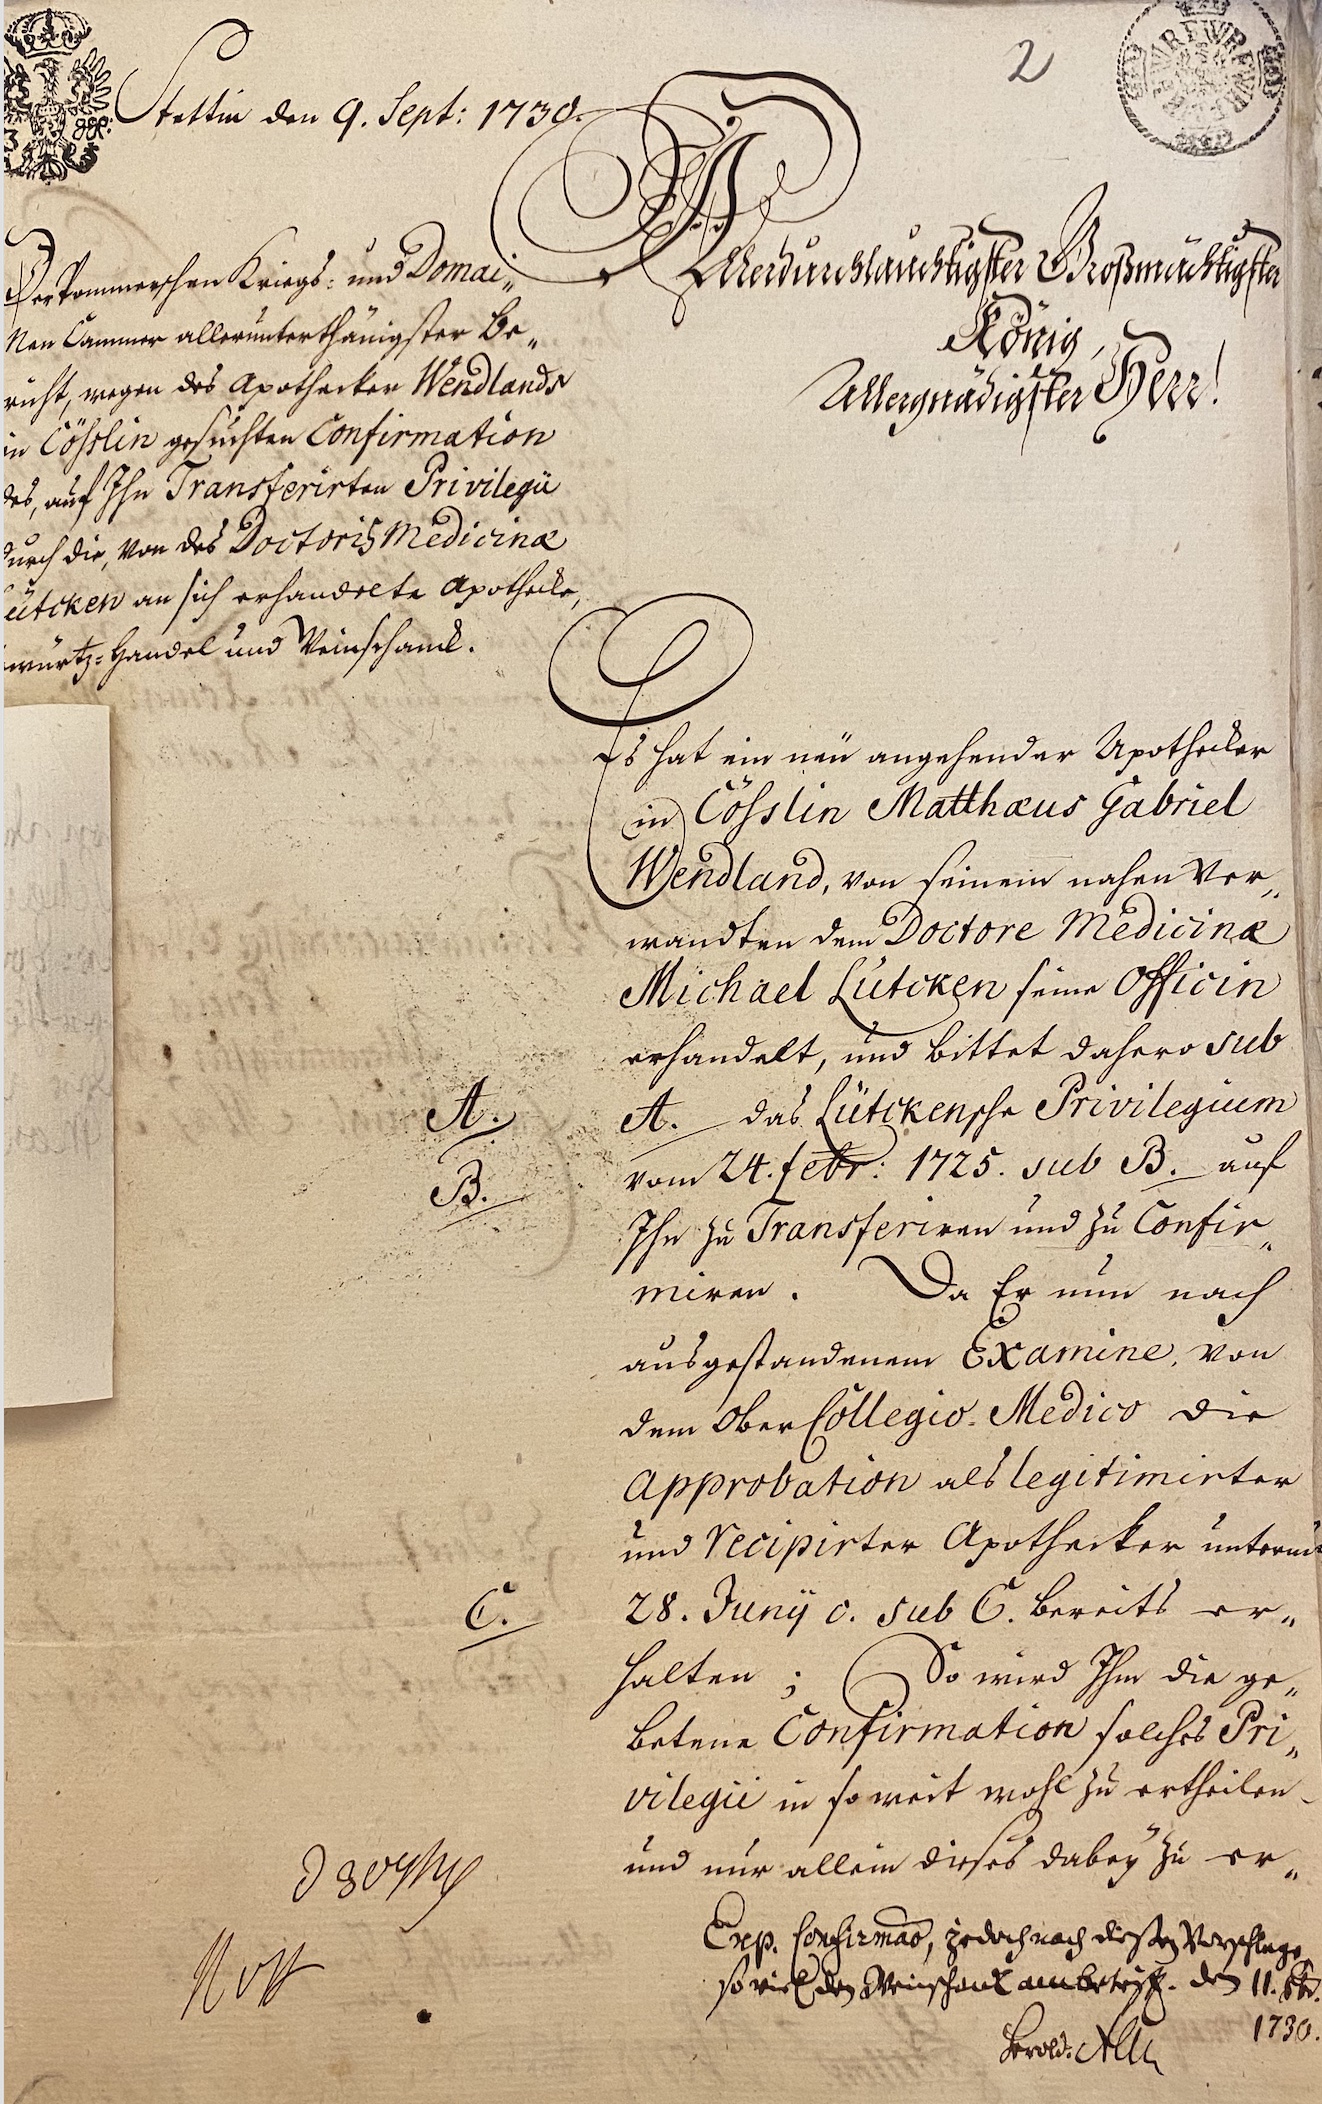 2
Stettin den 9. Sept: 1730.
Der Pommerschen Kriegs- und Domai-
nen Cammer allerunterthänigster Be-
richt, wegen des Apothecker Wendlands
in Cösslin gesuchten Confirmation
des, auf Ihn Transferirten Privilegii
durch die, von des Doctoris Medicinæ
Lütcken an sich erhandelte Apothecke,
würtz-Handel und Weinschanck.
Allerdurchlauchtigster Großmächtigster
König,
Allergnädigster Herr!
Es hat ein neü angehender Apothecker
in Cösslin Matthæus Gabriel
Wendland, von seinem nahen Ver-
wandten dem Doctore Medicinæ
Michael Lütcken seine Officin
erhandelt, und bittet dahero sub
A. A. das Lütckensche Privilegium
B. vom 24. febr: 1725. sub B. auf
Ihn zu Transferiren und zu Confir-
miren. Da Er nun nach
ausgestandenem Examine, von
dem Ober Collegio Medico die
Approbation als legitimirter
und recipirter Apothecker unterm
C. 28. Junÿ c. sub C. bereits er-
halten; So wird Ihm die ge-
betene Confirmation solches Pri-
vilegii in so weit wohl zu ertheilen
und nur allein dieses dabeÿ zu er-
Exp. Confirmao, jedoch nach diesem Vorschlage,
so viel den Weinschanck anbetrifft. den 11.
1730.
Berol: